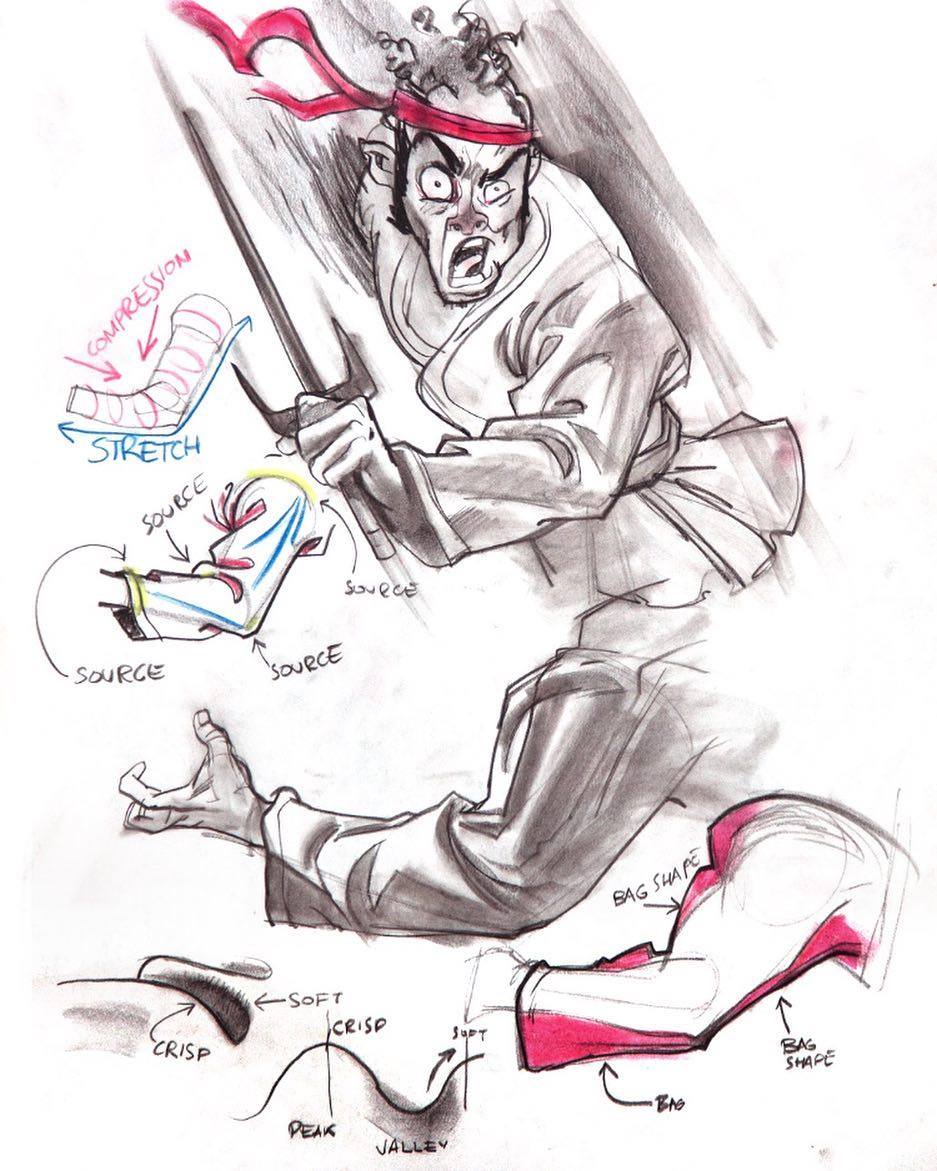 COMPRESSION
STRETCH
SOURCE
SOURCE
SOURCE
SOURCE
BAG SHAPE
SOFT
CRISP
CRISP
SOFT
PEAK
VALLEY
BAG
SHAPE
BAG